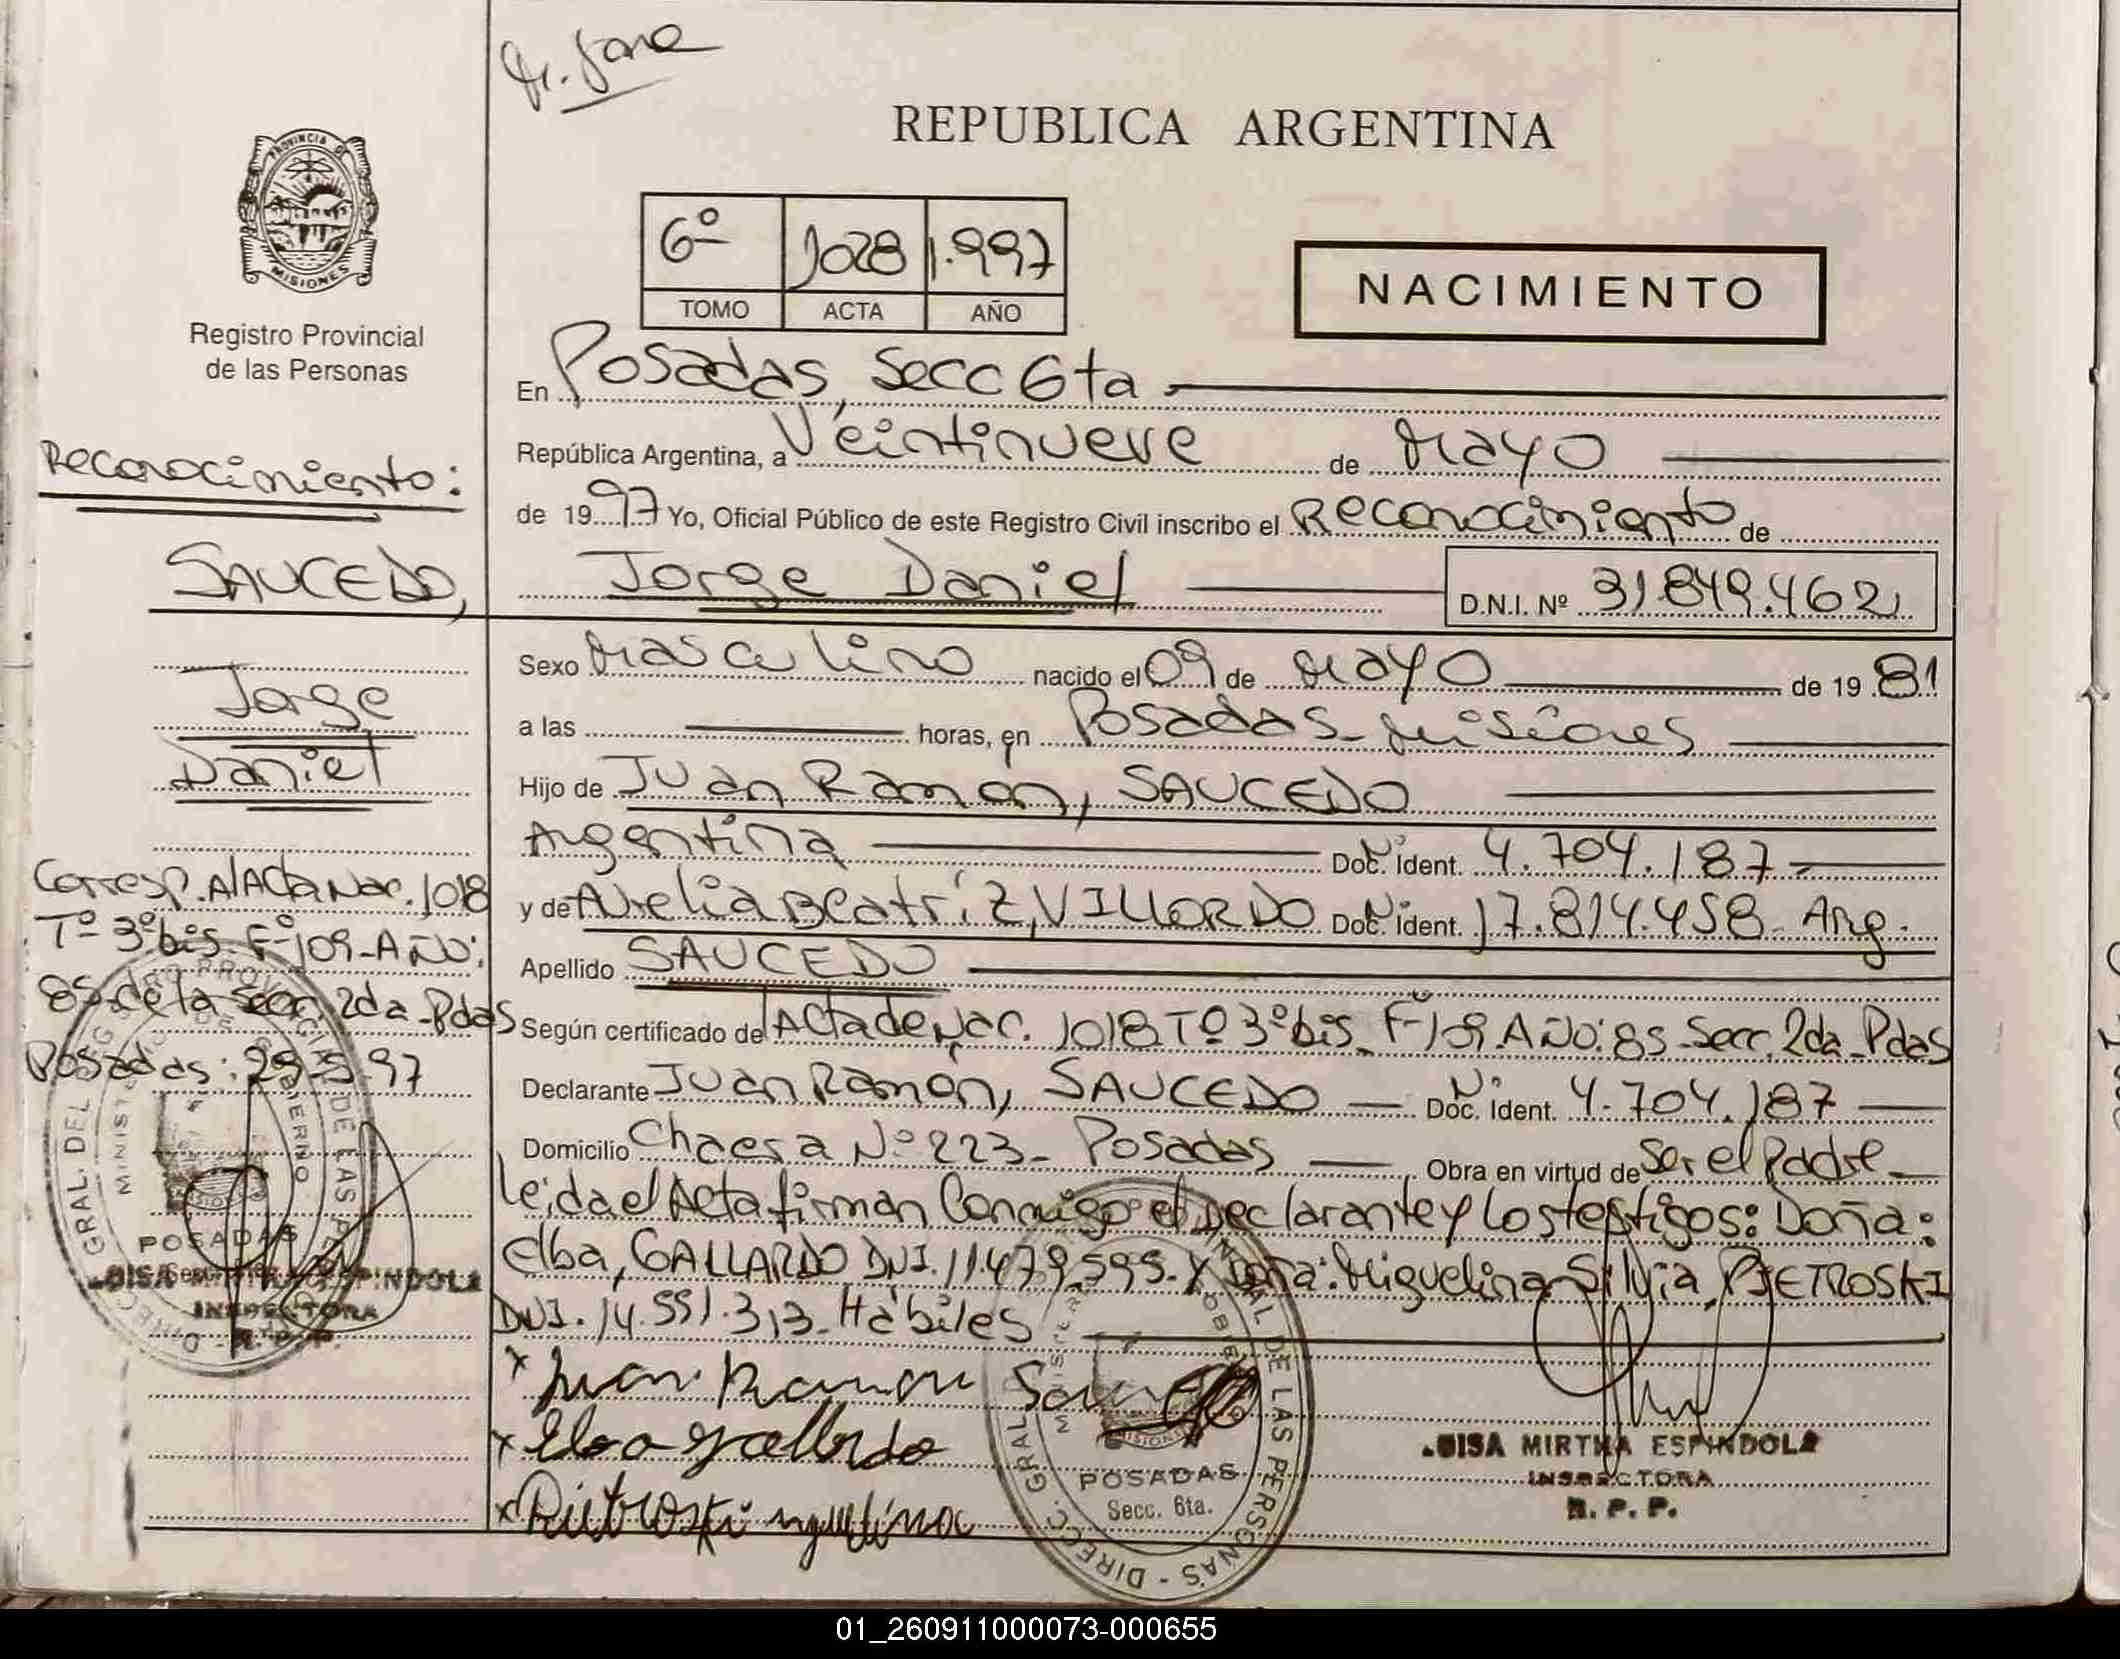 REPUBLICA ARGENTINA
PROVINCIA DE
MISIONES
Registro Provincial
de las Personas
6º 1028 1.997
TOMO ACTA AÑO
NACIMIENTO
En Posadas, Secc 6ta
República Argentina, a Veintinueve de Mayo
de 1997 Yo, Oficial Público de este Registro Civil inscribo el Reconocimiento de
Jorge Daniel D.N.I. Nº 31.849.462
Sexo Masculino nacido el 09 de Mayo de 1981
a las horas, en Posadas - Misiones
Hijo de Juan Ramon, SAUCEDO
Argentina Doc. Ident. 4.704.187
y de Avelia Beatríz, VILLORDO Doc. Ident. 17.814.458 - Arg.
Apellido SAUCEDO
Según certificado de Acta de Nac. 1018 Tº 3º bis Fº 109. AÑO: 85 Secc. 2da - Pdas
Declarante Juan Ramón, SAUCEDO Doc. Ident. 4.704.187
Domicilio Chacra Nº 223 - Posadas Obra en virtud de Ser el Padre
Leida el Acta firman Conmigo el Declarante y los testigos: Doña:
Elba, GALLARDO DNI. 11.479.595 - Y Doña: Miguelina Silvia, PIETROSKI
DNI. 14.551.313 - Hábiles
x Juan Ramon
x Elba Gallardo
x Pietroski
LUISA MIRTHA ESPINDOLA
INSPECTORA
R. P. P.
POSADAS
Secc. 6ta.
DIRECC. GRAL. DE LAS PERSONAS
Reconocimiento:
SAUCEDO,
Jorge
Daniel
Corresp. A/Acta Nac. 1018
Tº 3º bis Fº 109 - AÑO:
85 - de la Secc. 2da - Pdas
Posadas: 29-5-97
POSADAS
ESPINDOLA
INSPECTORA
R. P. P.
01_260911000073-000655